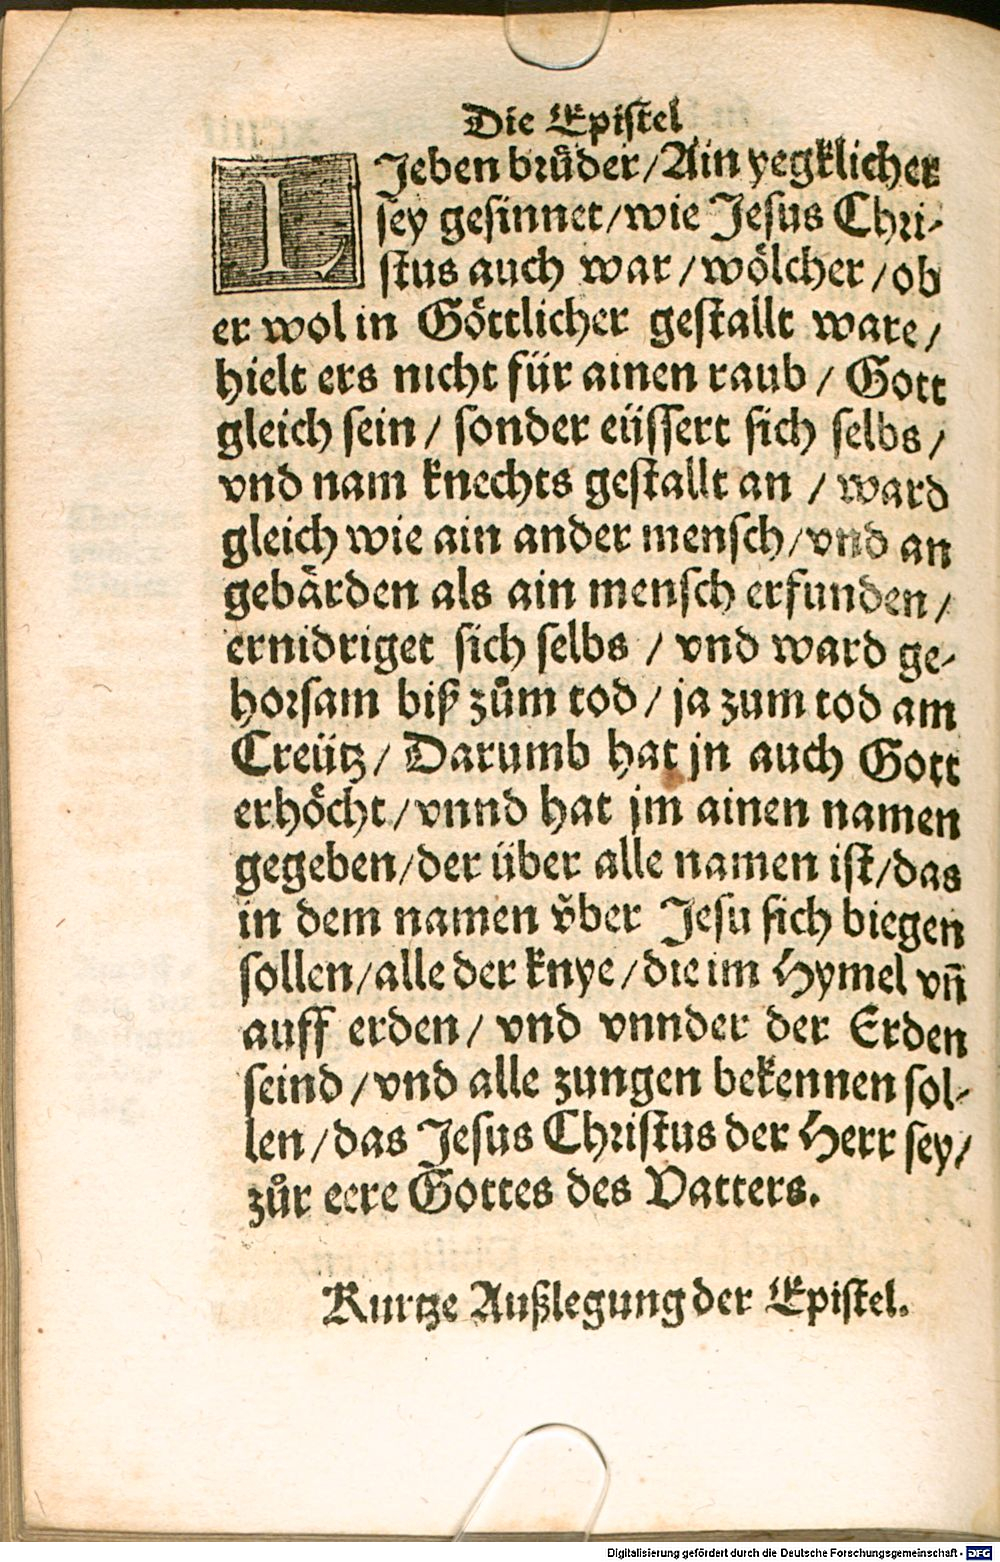 Die Epiſtel
LJeben bruͤder / Ain yegklicher
ſey geſinnet / wie Jeſus Chri-
ſtus auch war / woͤlcher / ob
er wol in Goͤttlicher geſtallt ware /
hielt ers nicht für ainen raub / Gott
gleich ſein / ſonder eüſſert ſich ſelbs /
vnd nam knechts geſtallt an / ward
gleich wie ain ander menſch / vnd an
gebaͤrden als ain menſch erfunden /
ernidriget ſich ſelbs / vnd ward ge-
horſam biß zuͦm tod / ja zum tod am
Creütz / Darumb hat jn auch Gott
erhoͤcht / vnnd hat jm ainen namen
gegeben / der über alle namen iſt / das
in dem namen vͤber Jeſu ſich biegen
ſollen / alle der knye / die im Hymel vñ
auff erden / vnd vnnder der Erden
ſeind / vnd alle zungen bekennen ſol-
len / das Jeſus Chriſtus der Herr ſey /
zuͦr eere Gottes des Vatters.
Kurtze Außlegung der Epiſtel.
Digitalisierung gefördert durch die Deutsche Forschungsgemeinschaft - DFG